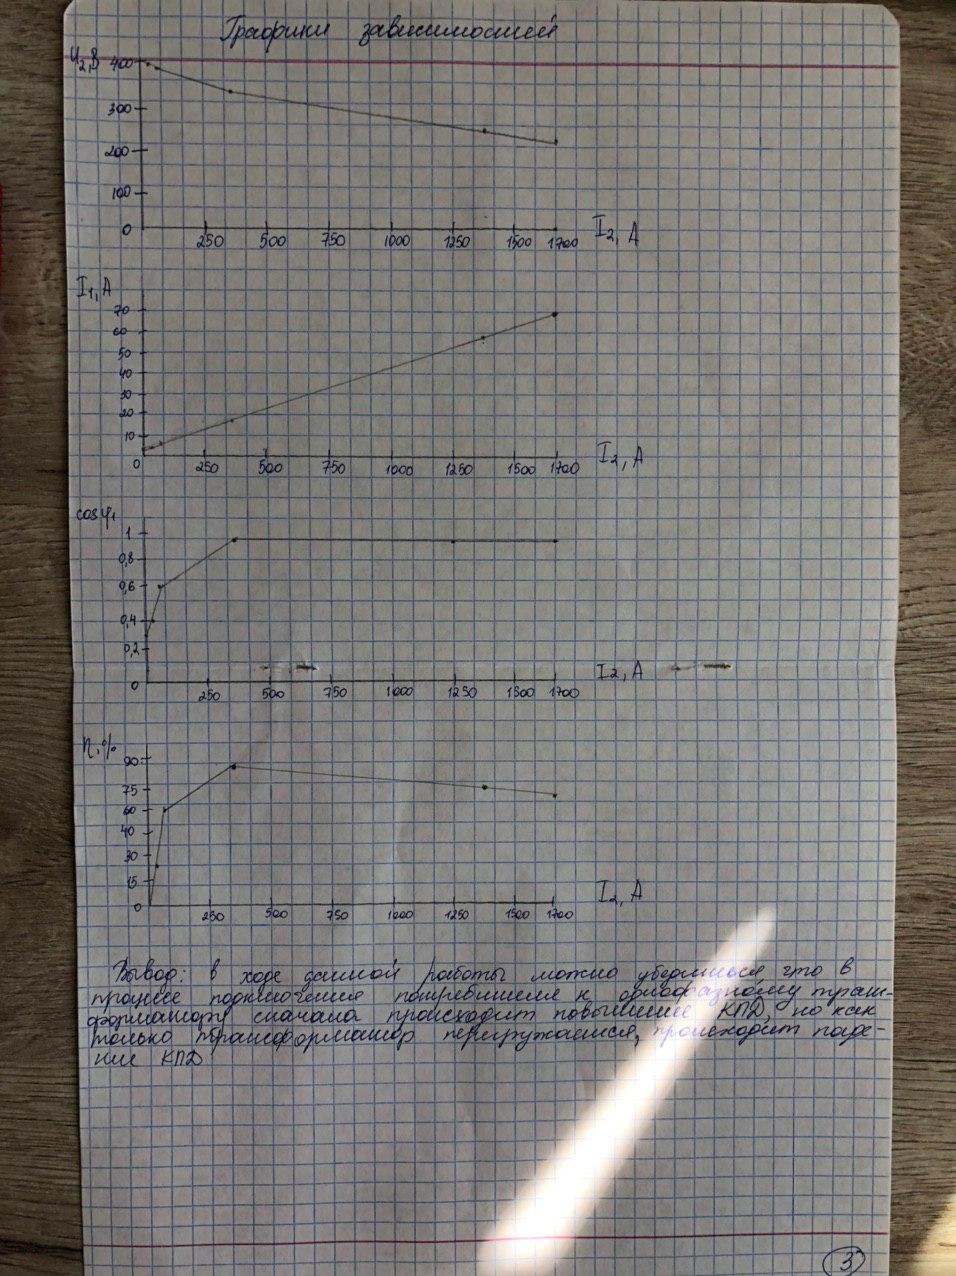 Графики зависимостей
U2,В
400
300
200
100
0
250 500 750 1000 1250 1500 1700 I2, А
I1, А
70
60
50
40
30
20
10
0
250 500 750 1000 1250 1500 1700 I2, А
cosφ1
1
0,8
0,6
0,4
0,2
0
250 500 750 1000 1250 1500 1700 I2, А
η,%
90
75
60
40
30
15
0
250 500 750 1000 1250 1500 1700 I2, А
Вывод: в ходе данной работы можно убедиться, что в
процессе подключения потребителя к однофазному транс-
форматору сначала происходит повышение КПД, но как
только трансформатор перегружается, происходит паде-
ние КПД
3